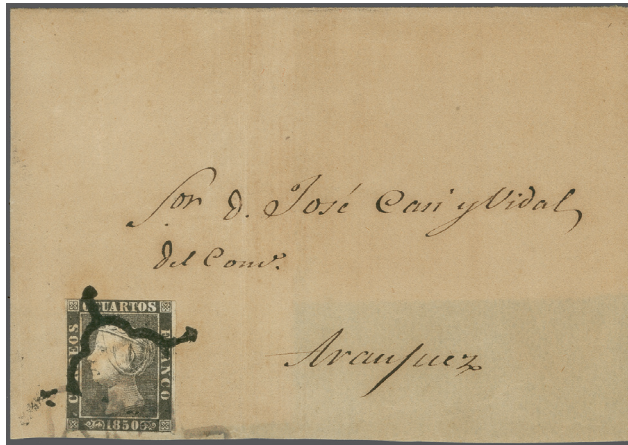 Sor. D. José Cari y Vidal,
del Como.
Aranjuez
CUARTOS
CORREOS
FRANCO
1850